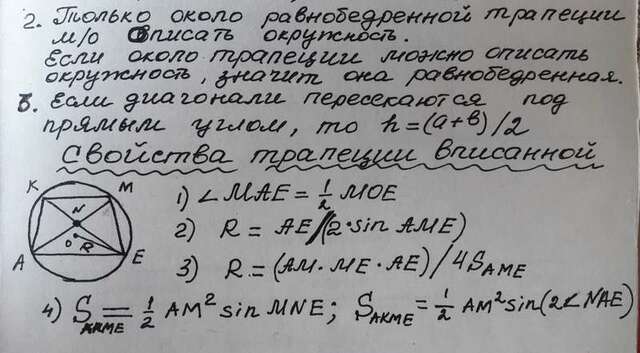 2. Только около равнобедренной трапеции
м/о Описать окружность.
Если около трапеции можно описать
окружность, значит она равнобедренная.
Б. Если диагонали пересекаются под
прямым углом, то h=(a+b)/2
Свойства трапеции вписанной
A K
O N
R
E M
1) ∠MAE = 1/2 MOE
2) R = AE/(2·sin AME)
3) R = (AM·ME·AE)/4S AME
4) S AKME = 1/2 AM² sin MNE; S AKME = 1/2 AM² sin(2∠NAE)